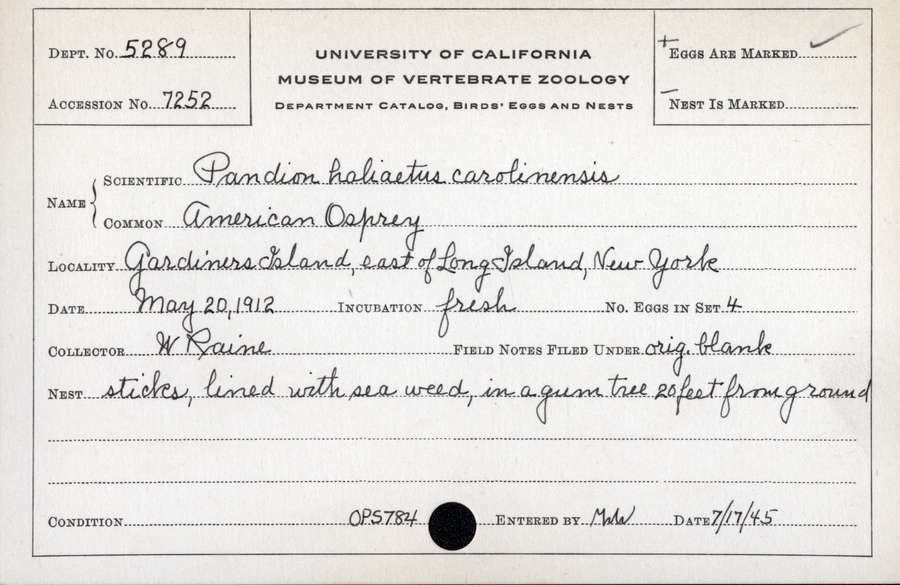 DEPT. No. 5289
ACCESSION No. 7252
UNIVERSITY OF CALIFORNIA
MUSEUM OF VERTEBRATE ZOOLOGY
DEPARTMENT CATALOG, BIRDS' EGGS AND NESTS
+ EGGS ARE MARKED ✓
– NEST IS MARKED
NAME { SCIENTIFIC Pandion haliaetus carolinensis
COMMON American Osprey
LOCALITY Gardiners Island, east of Long Island, New York
DATE May 20, 1912 INCUBATION fresh No. EGGS IN SET 4
COLLECTOR W Raine FIELD NOTES FILED UNDER orig. blank
NEST sticks, lined with sea weed, in a gum tree 20 feet from ground
CONDITION OPS784 ENTERED BY DATE 7/17/45